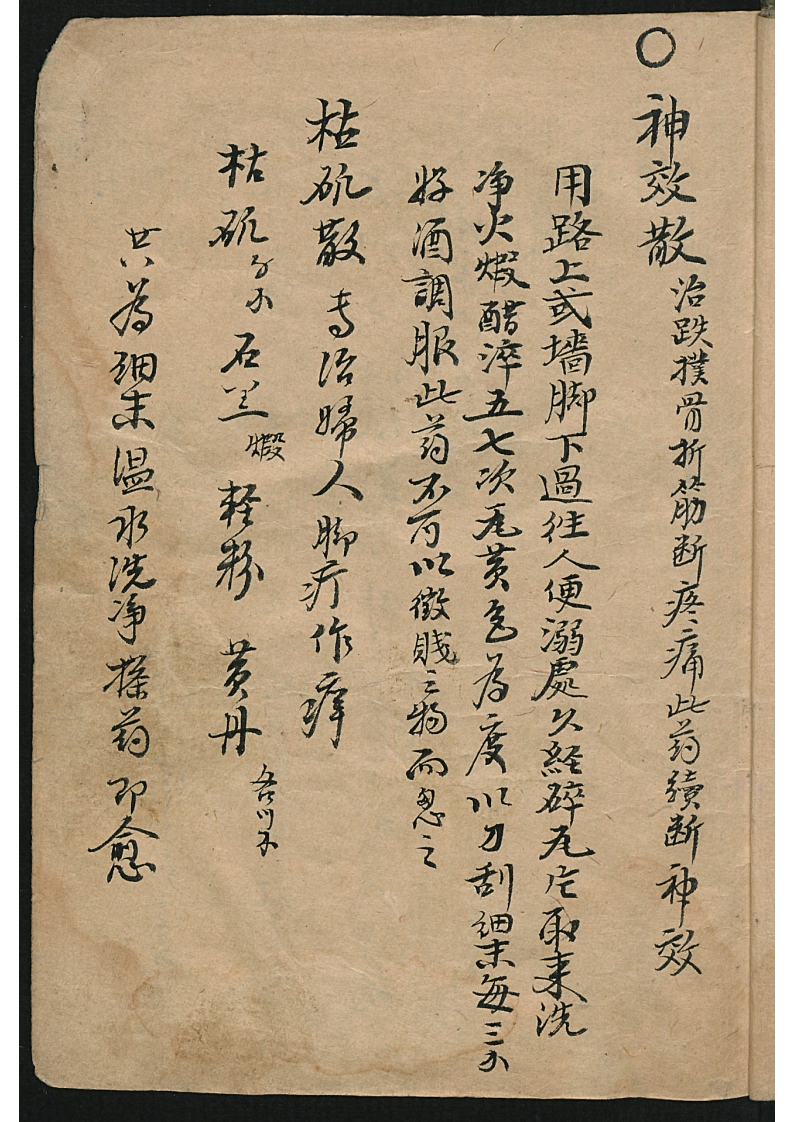 ○神效散 治跌撲骨折筋断疼痛此药續断神效
用路上或墻脚下過往人便溺處久經碎瓦片取来洗
净火煅醋淬五七次瓦黄色為度以刀刮細末每三
好酒調服此药不可以微賤之物而忽之
枯矾散 专治婦人脚疔作痒
枯矾 石羔煅 軽粉 黄丹
共為細末温水洗净搽药即愈